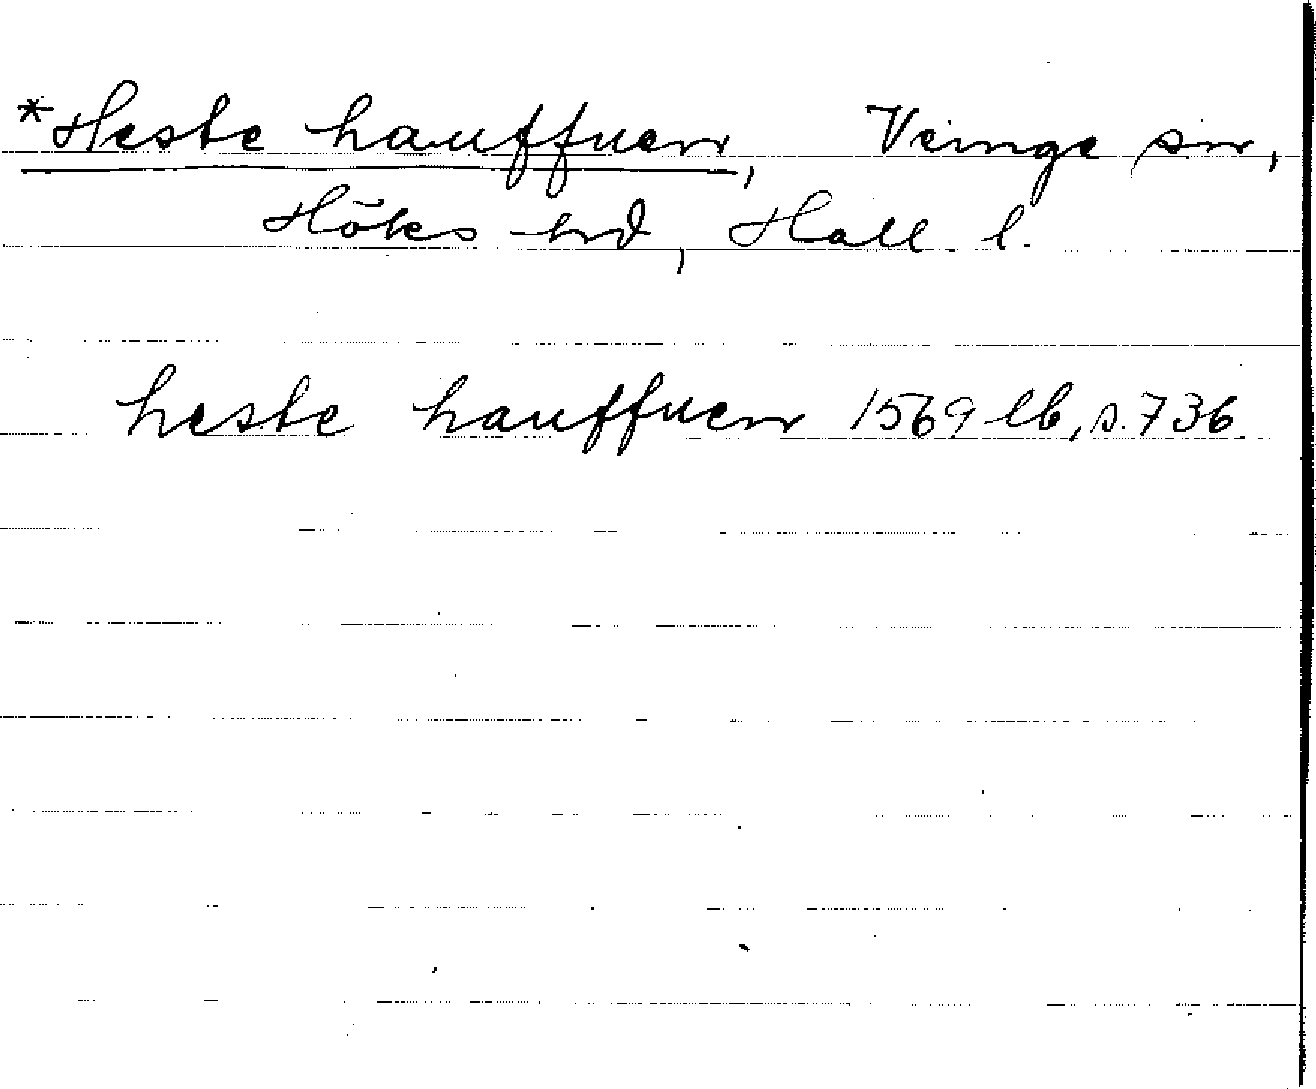 *Heste hauffuenn, Veinge sn,
Höks hd, Hall l.
heste hauffuenn 1569 lb, s. 736.